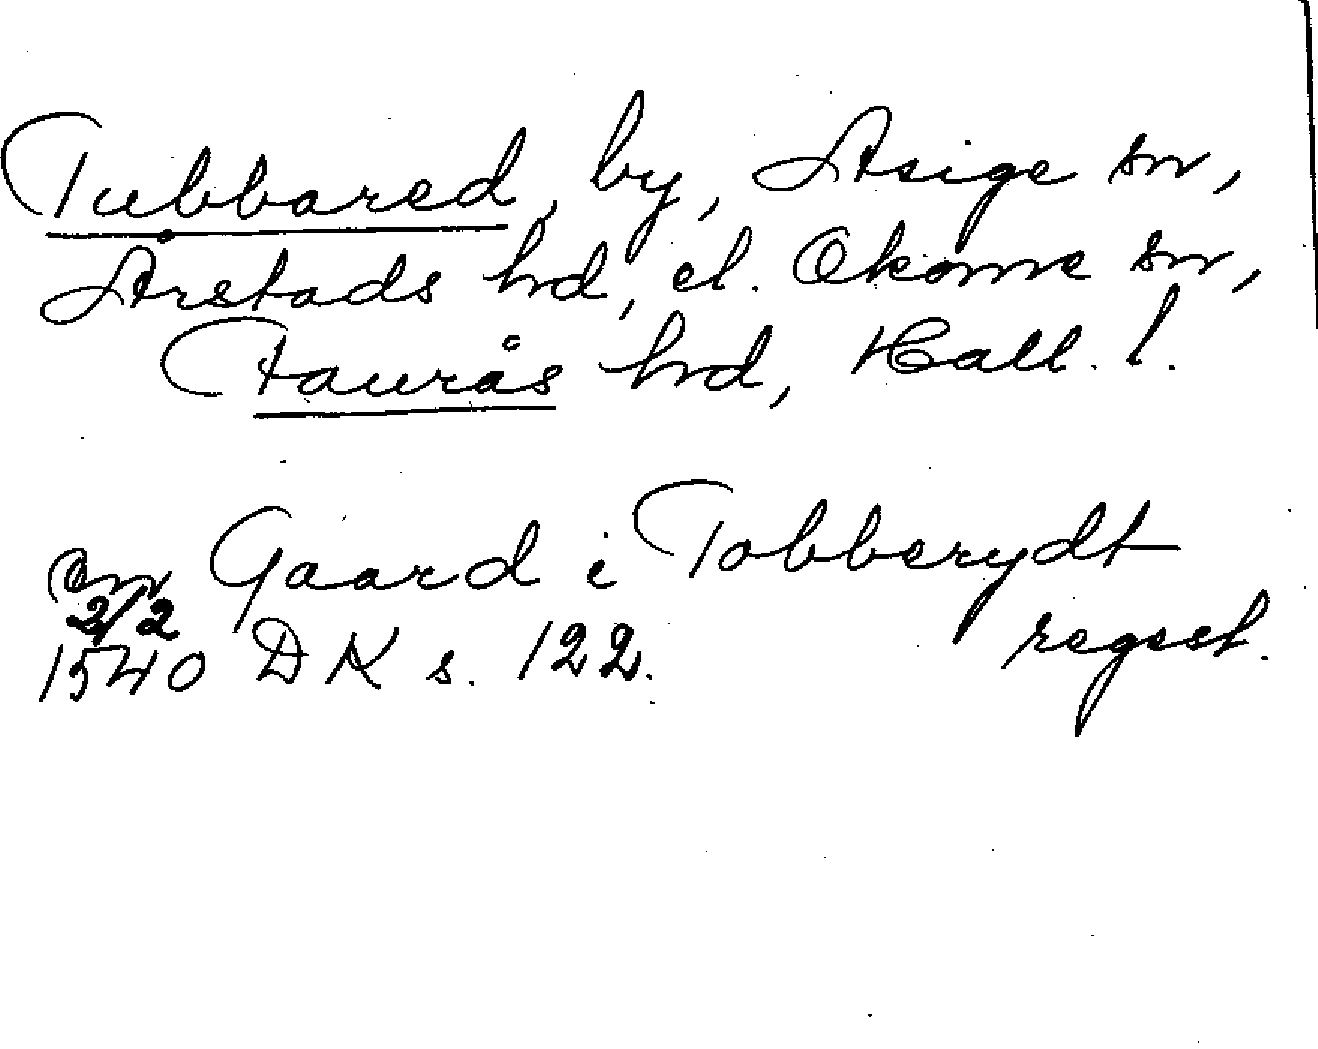 Tubbared, by, Asige sn,
Årstads hd, el. Okome sn,
Faurås hd, Hall. l.
en Gaard i Tobberydt
2/2 regest.
1540 DK s. 122.